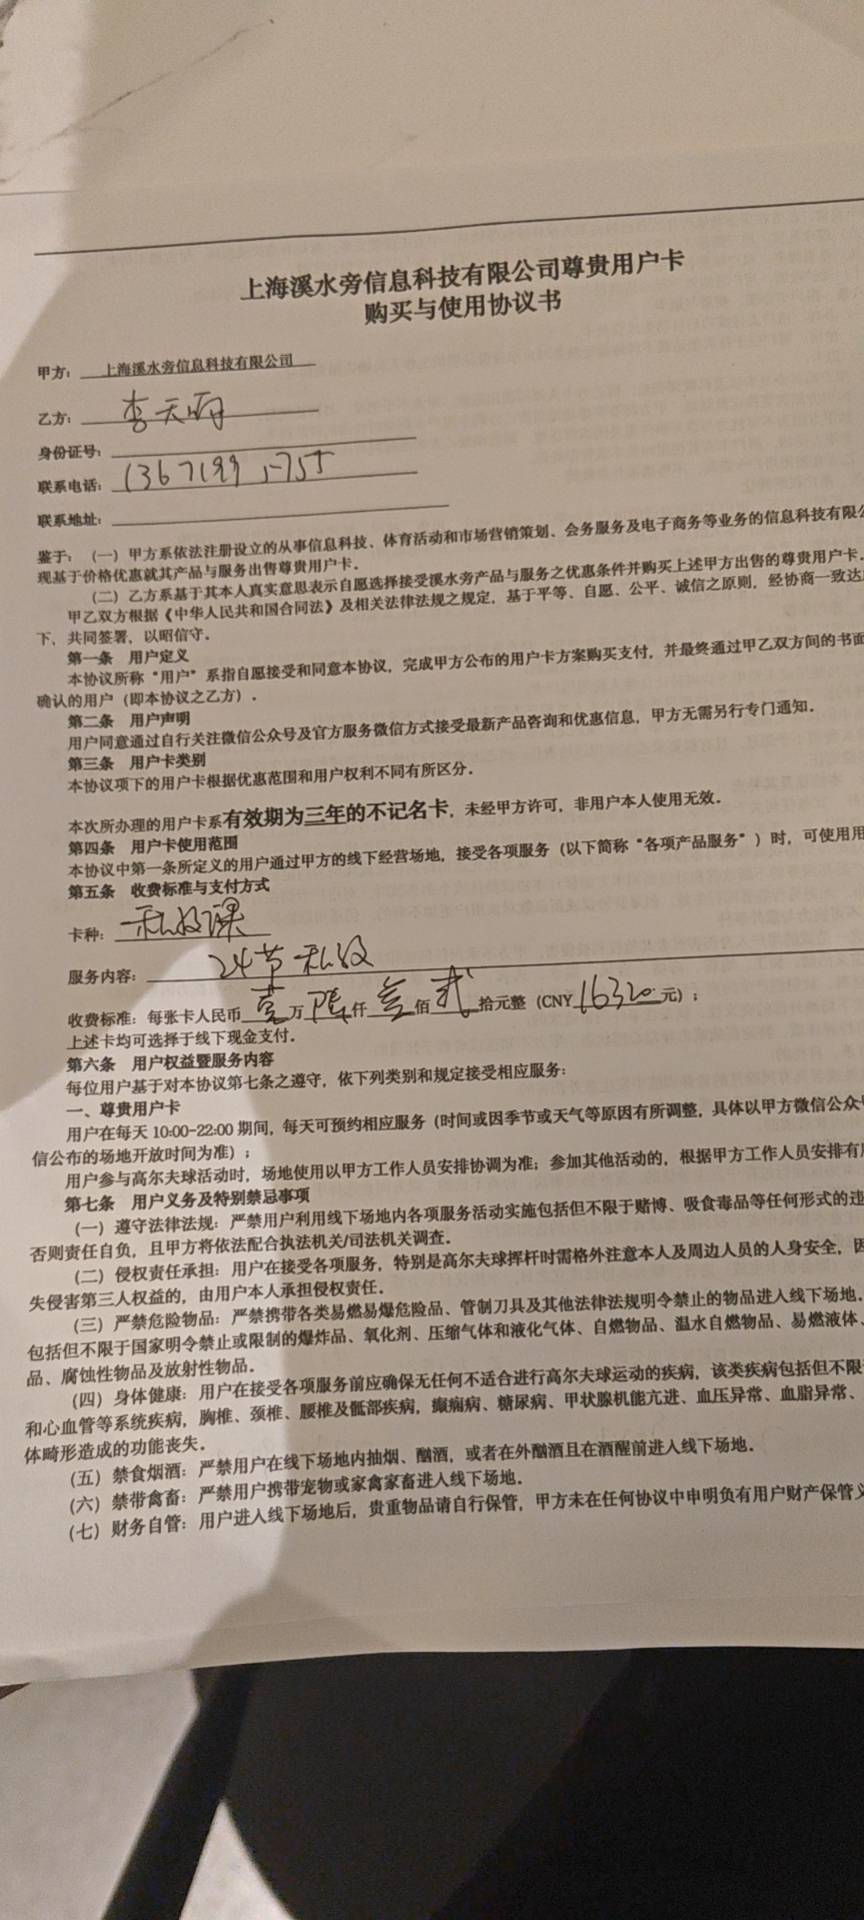 上海溪水旁信息科技有限公司尊贵用户卡
购买与使用协议书
甲方：上海溪水旁信息科技有限公司
乙方：李天
身份证号：
联系电话：
联系地址：
鉴于：（一）甲方系依法注册设立的从事信息科技、体育活动和市场营销策划、会务服务及电子商务等业务的信息科技有限公
现基于价格优惠就其产品与服务出售尊贵用户卡．
（二）乙方系基于其本人真实意思表示自愿选择接受溪水旁产品与服务之优惠条件并购买上述甲方出售的尊贵用户卡．
甲乙双方根据《中华人民共和国合同法》及相关法律法规之规定，基于平等、自愿、公平、诚信之原则，经协商一致达
下，共同签署，以昭信守．
第一条 用户定义
本协议所称“用户”系指自愿接受和同意本协议，完成甲方公布的用户卡方案购买支付，并最终通过甲乙双方间的书面
确认的用户（即本协议之乙方）．
第二条 用户声明
用户同意通过自行关注微信公众号及官方服务微信方式接受最新产品咨询和优惠信息，甲方无需另行专门通知．
第三条 用户卡类别
本协议项下的用户卡根据优惠范围和用户权利不同有所区分．
本次所办理的用户卡系有效期为三年的不记名卡，未经甲方许可，非用户本人使用无效．
第四条 用户卡使用范围
本协议中第一条所定义的用户通过甲方的线下经营场地，接受各项服务（以下简称“各项产品服务”）时，可使用用
第五条 收费标准与支付方式
卡种：私教课
服务内容：24节私教
收费标准：每张卡人民币壹万陆仟叁佰贰拾元整（CNY 16320元）；
上述卡均可选择于线下现金支付．
第六条 用户权益暨服务内容
每位用户基于对本协议第七条之遵守，依下列类别和规定接受相应服务：
一、尊贵用户卡
用户在每天 10:00-22:00 期间，每天可预约相应服务（时间或因季节或天气等原因有所调整，具体以甲方微信公众
信公布的场地开放时间为准）；
用户参与高尔夫球活动时，场地使用以甲方工作人员安排协调为准；参加其他活动的，根据甲方工作人员安排有
第七条 用户义务及特别禁忌事项
（一）遵守法律法规：严禁用户利用线下场地内各项服务活动实施包括但不限于赌博、吸食毒品等任何形式的违
否则责任自负，且甲方将依法配合执法机关/司法机关调查．
（二）侵权责任承担：用户在接受各项服务，特别是高尔夫球挥杆时需格外注意本人及周边人员的人身安全，因
失侵害第三人权益的，由用户本人承担侵权责任．
（三）严禁危险物品：严禁携带各类易燃易爆危险品、管制刀具及其他法律法规明令禁止的物品进入线下场地．
包括但不限于国家明令禁止或限制的爆炸品、氧化剂、压缩气体和液化气体、自燃物品、温水自燃物品、易燃液体、
品、腐蚀性物品及放射性物品．
（四）身体健康：用户在接受各项服务前应确保无任何不适合进行高尔夫球运动的疾病，该类疾病包括但不限
和心血管等系统疾病，胸椎、颈椎、腰椎及骶部疾病，癫痫病、糖尿病、甲状腺机能亢进、血压异常、血脂异常、
体畸形造成的功能丧失．
（五）禁食烟酒：严禁用户在线下场地内抽烟、酗酒，或者在外酗酒且在酒醒前进入线下场地．
（六）禁带禽畜：严禁用户携带宠物或家禽家畜进入线下场地．
（七）财务自管：用户进入线下场地后，贵重物品请自行保管，甲方未在任何协议中申明负有用户财产保管义